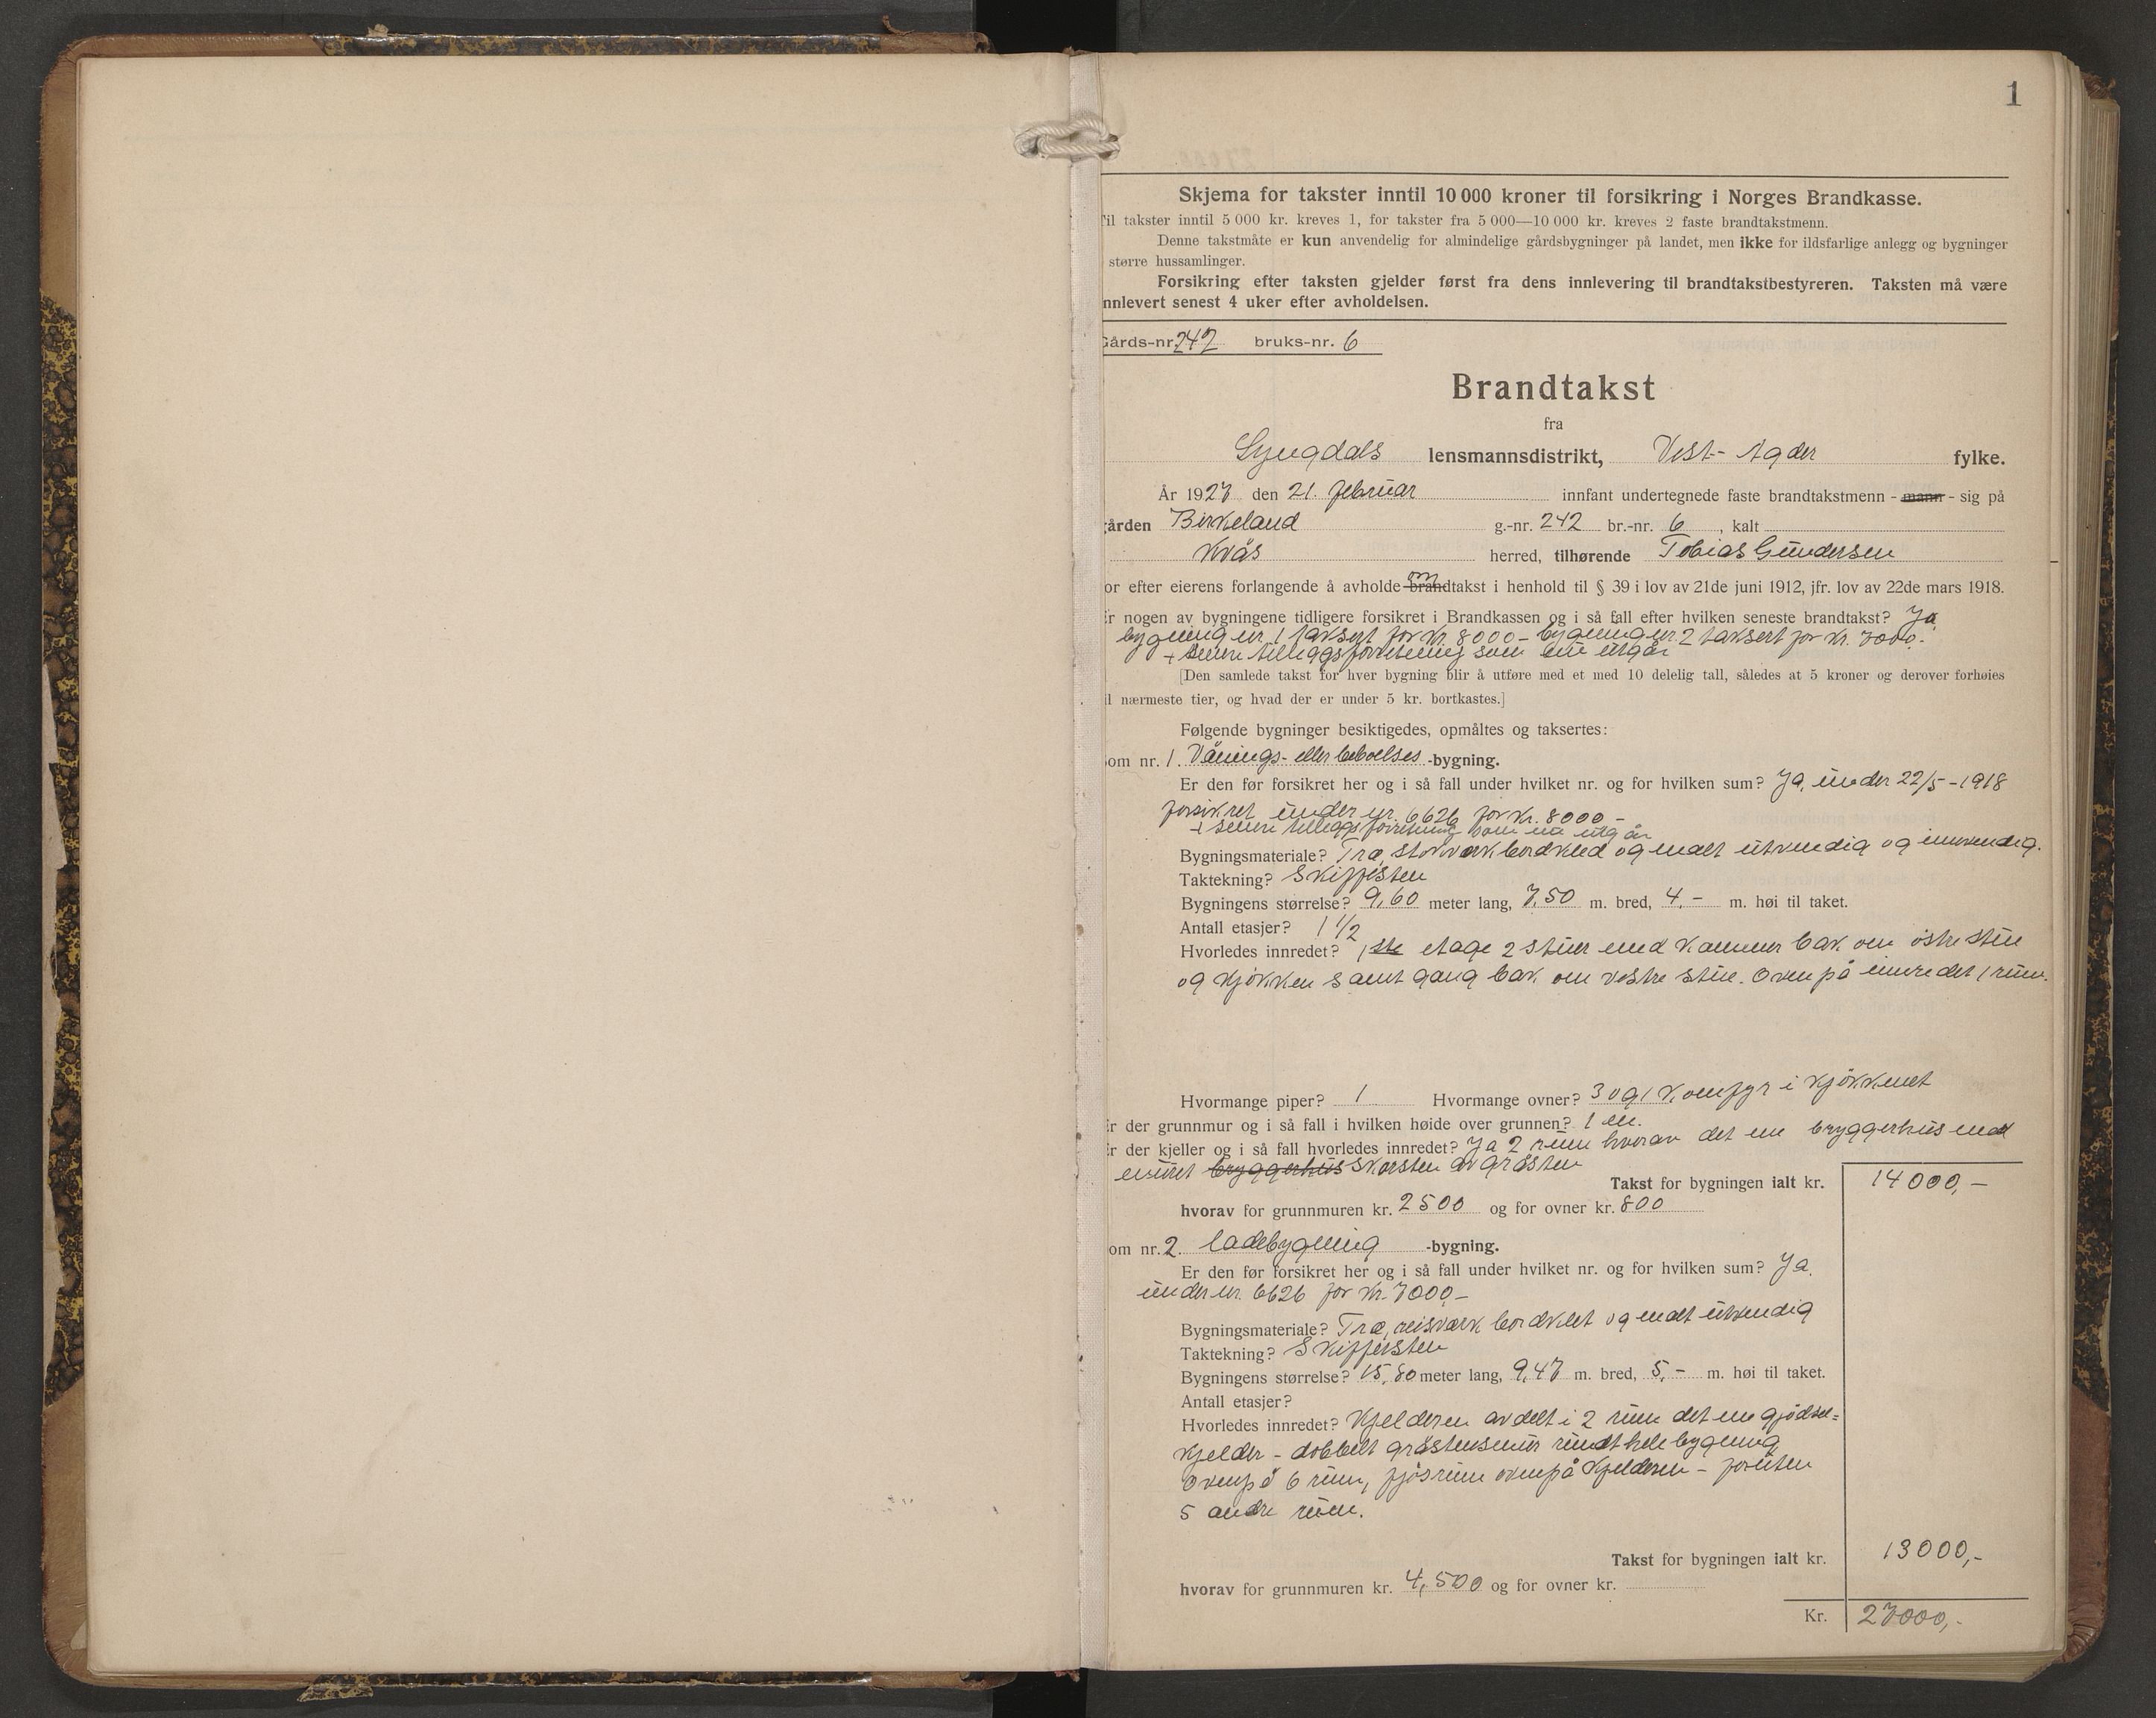 1
Skjema for takster inntil 10 000 kroner til forsikring i Norges Brandkasse.
Til takster inntil 5 000 kr. kreves 1, for takster fra 5 000—10 000 kr. kreves 2 faste brandtakstmenn.
Denne takstmåte er kun anvendelig for almindelige gårdsbygninger på landet, men ikke for ildsfarlige anlegg og bygninger
større hussamlinger.
Forsikring efter taksten gjelder først fra dens innlevering til brandtakstbestyreren. Taksten må være
nnlevert senest 4 uker efter avholdelsen.
Gårds-nr. 242 bruks-nr. 6
Brandtakst
fra
Lyngdals lensmannsdistrikt, Vest-Agder fylke.
År 1927 den 21. februar innfant undertegnede faste brandtakstmenn - mann - sig på
gården Birkeland g.-nr. 242 br.-nr. 6, kalt
Kvås herred, tilhørende Tobias Gundersen
or efter eierens forlangende å avholde om brandtakst i henhold til § 39 i lov av 21de juni 1912, jfr. lov av 22de mars 1918.
Er nogen av bygningene tidligere forsikret i Brandkassen og i så fall efter hvilken seneste brandtakst? Ja
bygning nr. 1 taksert for kr. 8000 - bygning nr. 2 taksert for kr. 7000.-
+ senere tilleggsforretning som nu utgår
[Den samlede takst for hver bygning blir å utføre med et med 10 delelig tall, således at 5 kroner og derover forhøies
il nærmeste tier, og hvad der er under 5 kr. bortkastes.]
Følgende bygninger besiktigedes, opmåltes og taksertes:
om nr. 1. Vånings- eller beboelses -bygning.
Er den før forsikret her og i så fall under hvilket nr. og for hvilken sum? Ja, under 22/5-1918
forsikret under nr. 6626 for kr. 8000 -
+ senere tilleggsforretning som nu utgår
Bygningsmateriale? Træ, stokverk bordkled og malt utvendig og innvendig.
Taktekning? Skiffersten
Bygningens størrelse? 9,60 meter lang, 7,50 m. bred, 4,- m. høi til taket.
Antall etasjer? 1 1/2
Hvorledes innredet? 1ste etage 2 stuer med kammer bak om østre stue
og kjøkken samt gang bak om vestre stue. Ovenpå innredet 1 rum.
Hvormange piper? 1 Hvormange ovner? 3 og 1 komfyr i kjøkkenet
Er der grunnmur og i så fall i hvilken høide over grunnen? 1 m.
Er der kjeller og i så fall hvorledes innredet? Ja 2 rum hvorav det ene bryggerhus med
muret bryggerhus skorsten av gråsten
Takst for bygningen ialt kr. 14000,-
hvorav for grunnmuren kr. 2500 og for ovner kr. 800
om nr. 2. ladebygning -bygning.
Er den før forsikret her og i så fall under hvilket nr. og for hvilken sum? Ja,
under nr. 6626 for kr. 7000,-
Bygningsmateriale? Træ, reisverk bordklet og malt utvendig
Taktekning? Skiffersten
Bygningens størrelse? 15,80 meter lang, 9,47 m. bred, 5,- m. høi til taket.
Antall etasjer?
Hvorledes innredet? Kjelderen avdelt i 2 rum det ene gjødsel=
kjelder - dobbelt gråstensmur rundt hele bygning
Ovenpå 6 rum, fjøsrum ovenpå kjelderen - foruten
5 andre rum.
Takst for bygningen ialt kr. 13000,-
hvorav for grunnmuren kr. 4,500 og for ovner kr.
Kr. 27000,-